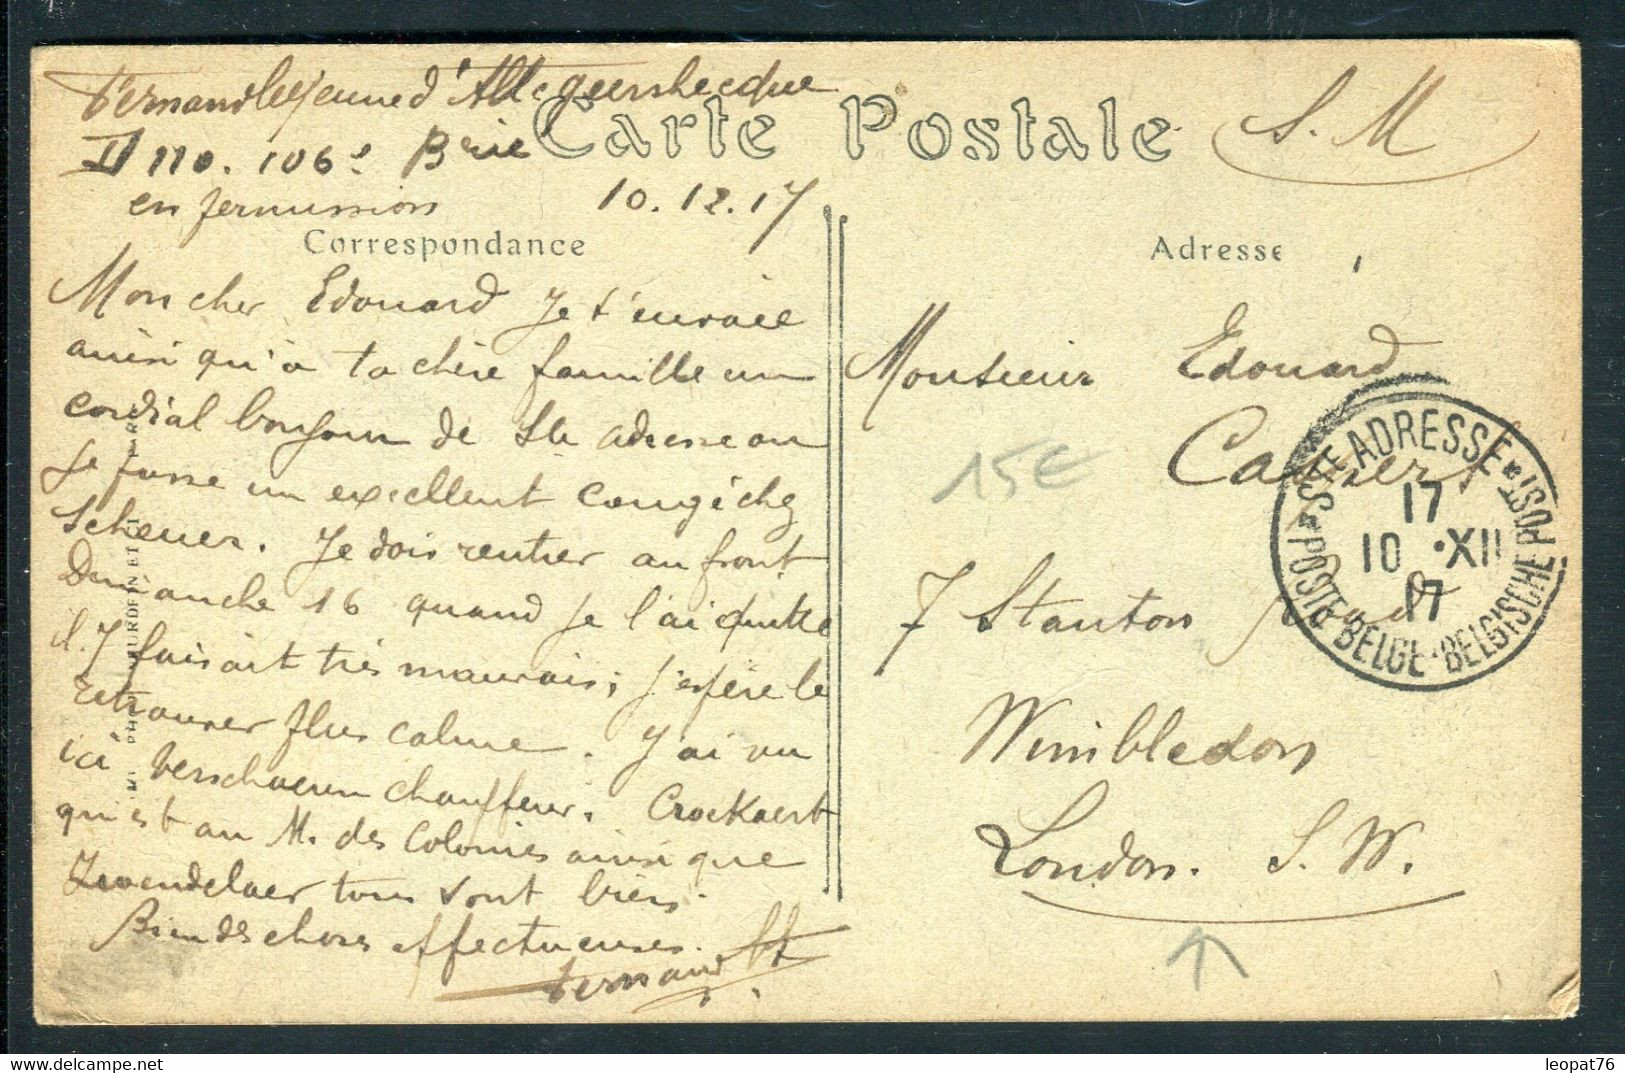 Fernand
II 110. 106e Brie
en permission 10.12.17
Carte Postale
S. M
Correspondance
Adresse
Mon cher Edouard Je t'envoie
ainsi qu'à ta chère famille un
cordial bonjour de Ste Adresse ou
je passe un excellent congé chez
Scheuer. Je dois rentrer au front
Dimanche 16 quand je l'ai quitté
il y faisait très mauvais; j'espère le
retrouver plus calme. J'ai vu
ici Verschaeren chauffeur. Crockaert
qui est au M. des Colonies ainsi que
Zwendelaer tous vont bien.
Bien des choses affectueuses.
Fernand
Monsieur Edouard
7 Stanton Road
Wimbledon
London. S. W.
15€
STE ADRESSE
17
10 XII
17
POSTE BELGE BELGISCHE POST
leopat76